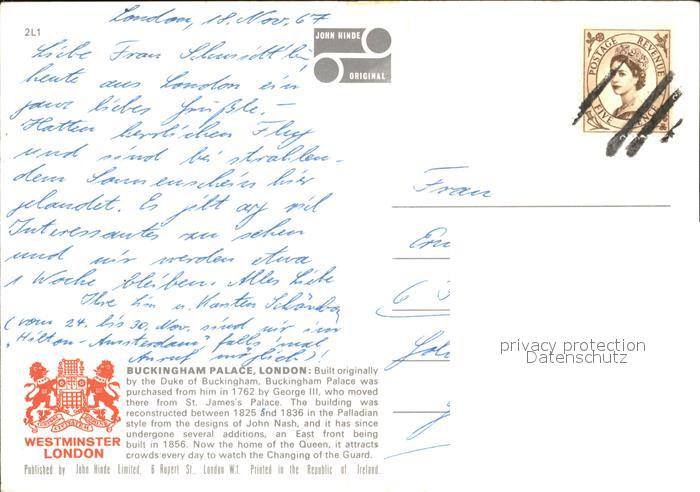 London, 18. Nov. 67
2L1
JOHN HINDE
ORIGINAL
Liebe Frau Schmidtlein
heute aus London ein
ganz liebes Grüßle. –
Hatten herrlichen Flug
und sind bei strahlen-
dem Sonnenschein hier
gelandet. Es gibt arg viel
Interessantes zu sehen
und wir werden etwa
1 Woche bleiben. Alles Liebe
Ihre u. Karsten
(vom 24. bis 30. Nov. sind wir im
"Hilton-Amsterdam", falls mal
Anruf möglich)!
POSTAGE REVENUE
FIVE PENCE
Frau
privacy protection
Datenschutz
BUCKINGHAM PALACE, LONDON: Built originally
by the Duke of Buckingham, Buckingham Palace was
purchased from him in 1762 by George III, who moved
there from St. James's Palace. The building was
reconstructed between 1825 and 1836 in the Palladian
style from the designs of John Nash, and it has since
undergone several additions, an East front being
built in 1856. Now the home of the Queen, it attracts
crowds every day to watch the Changing of the Guard.
WESTMINSTER
LONDON
Published by John Hinde Limited, 6 Rupert St., London W.1. Printed in the Republic of Ireland.